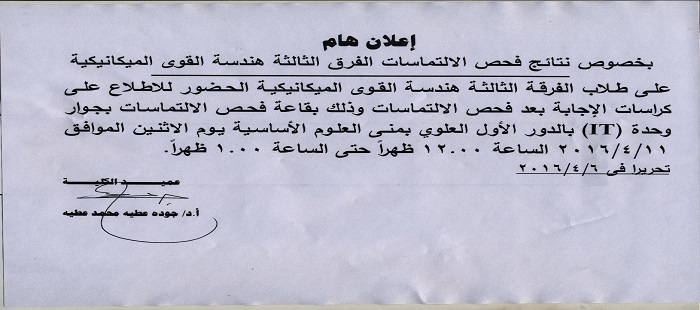 إعلان هام
بخصوص نتائج فحص الالتماسات الفرق الثالثة هندسة القوى الميكانيكية
على طلاب الفرقة الثالثة هندسة القوى الميكانيكية الحضور للاطلاع على
كراسات الإجابة بعد فحص الالتماسات وذلك بقاعة فحص الالتماسات بجوار
وحدة (IT) بالدور الأول العلوي بمنى العلوم الأساسية يوم الاثنين الموافق
٢٠١٦/٤/١١ الساعة ١٢.٠٠ ظهراً حتى الساعة ١.٠٠ ظهراً.
تحريرا فى ٢٠١٦/٤/٦
عميد الكلية
أ.د/ جوده عطيه محمد عطيه